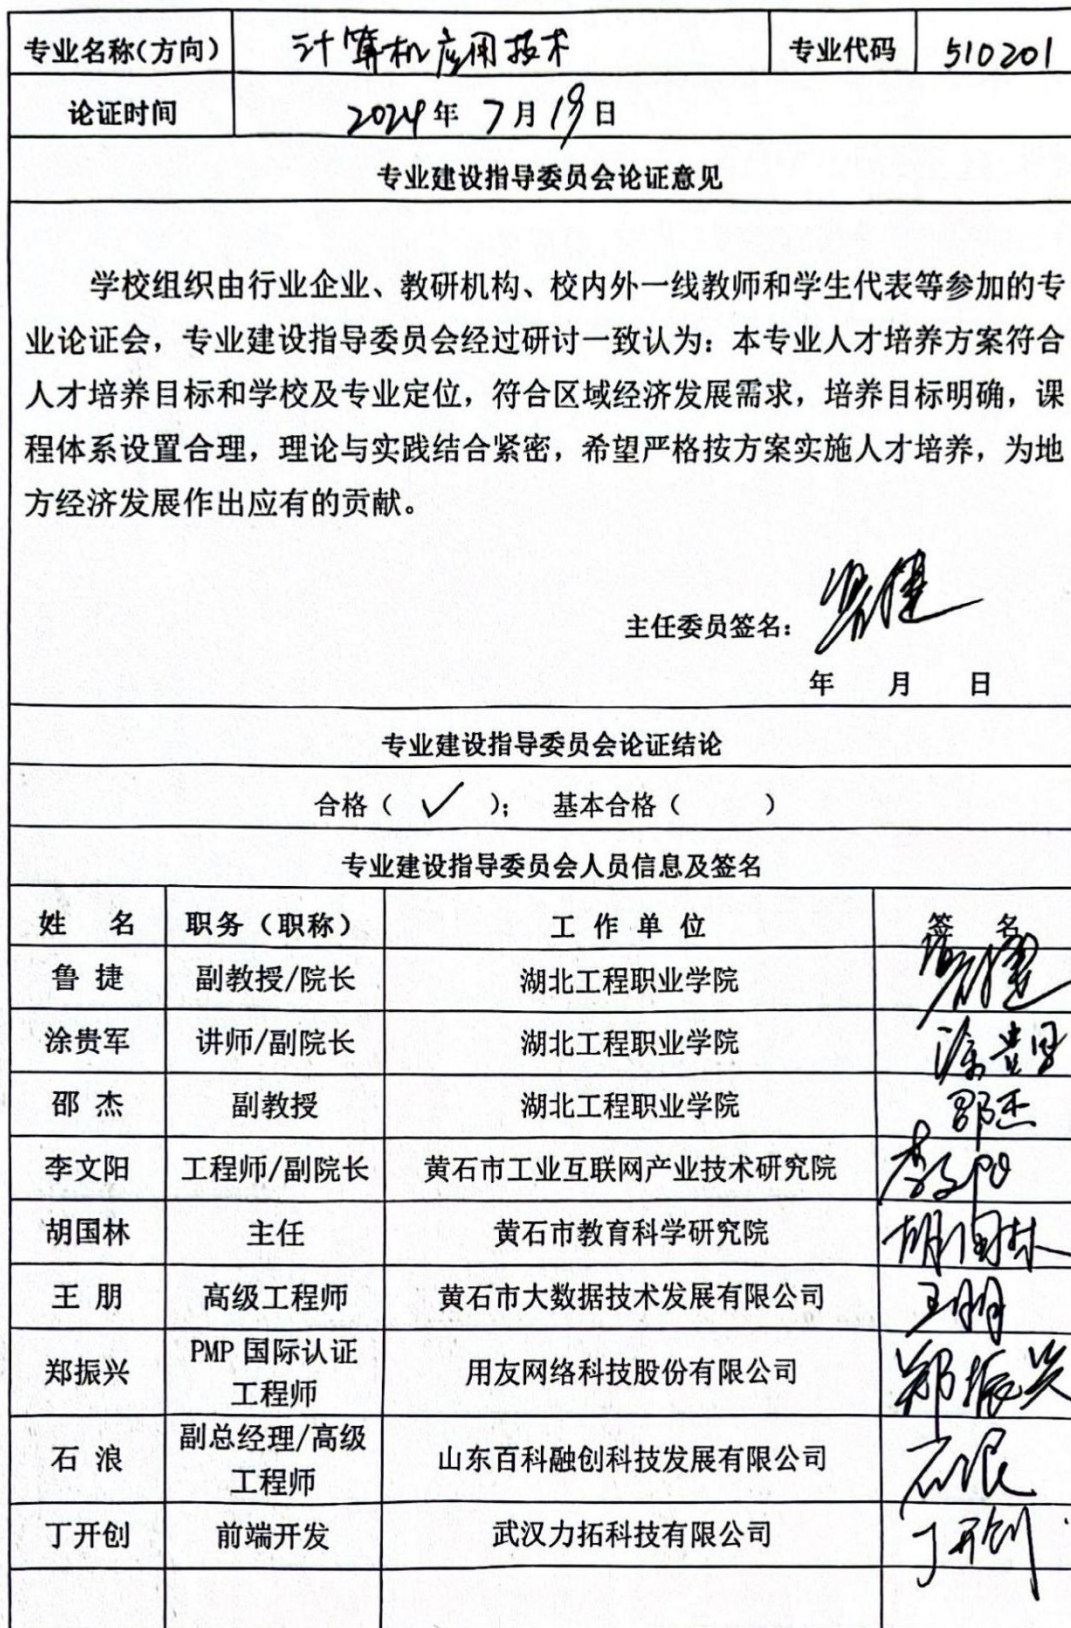 专业名称(方向) 计算机应用技术 专业代码 510201
论证时间 2024年 7月 19日
专业建设指导委员会论证意见
学校组织由行业企业、教研机构、校内外一线教师和学生代表等参加的专
业论证会，专业建设指导委员会经过研讨一致认为：本专业人才培养方案符合
人才培养目标和学校及专业定位，符合区域经济发展需求，培养目标明确，课
程体系设置合理，理论与实践结合紧密，希望严格按方案实施人才培养，为地
方经济发展作出应有的贡献。
主任委员签名： 鲁捷
年 月 日
专业建设指导委员会论证结论
合格（ ✓ ）； 基本合格（ ）
专业建设指导委员会人员信息及签名
姓 名 职务（职称） 工 作 单 位 签 名
鲁 捷 副教授/院长 湖北工程职业学院 鲁捷
涂贵军 讲师/副院长 湖北工程职业学院 涂贵军
邵 杰 副教授 湖北工程职业学院 邵杰
李文阳 工程师/副院长 黄石市工业互联网产业技术研究院 李文阳
胡国林 主任 黄石市教育科学研究院 胡国林
王 朋 高级工程师 黄石市大数据技术发展有限公司 王朋
郑振兴 PMP 国际认证 用友网络科技股份有限公司 郑振兴
工程师
石 浪 副总经理/高级 山东百科融创科技发展有限公司 石浪
工程师
丁开创 前端开发 武汉力拓科技有限公司 丁开创